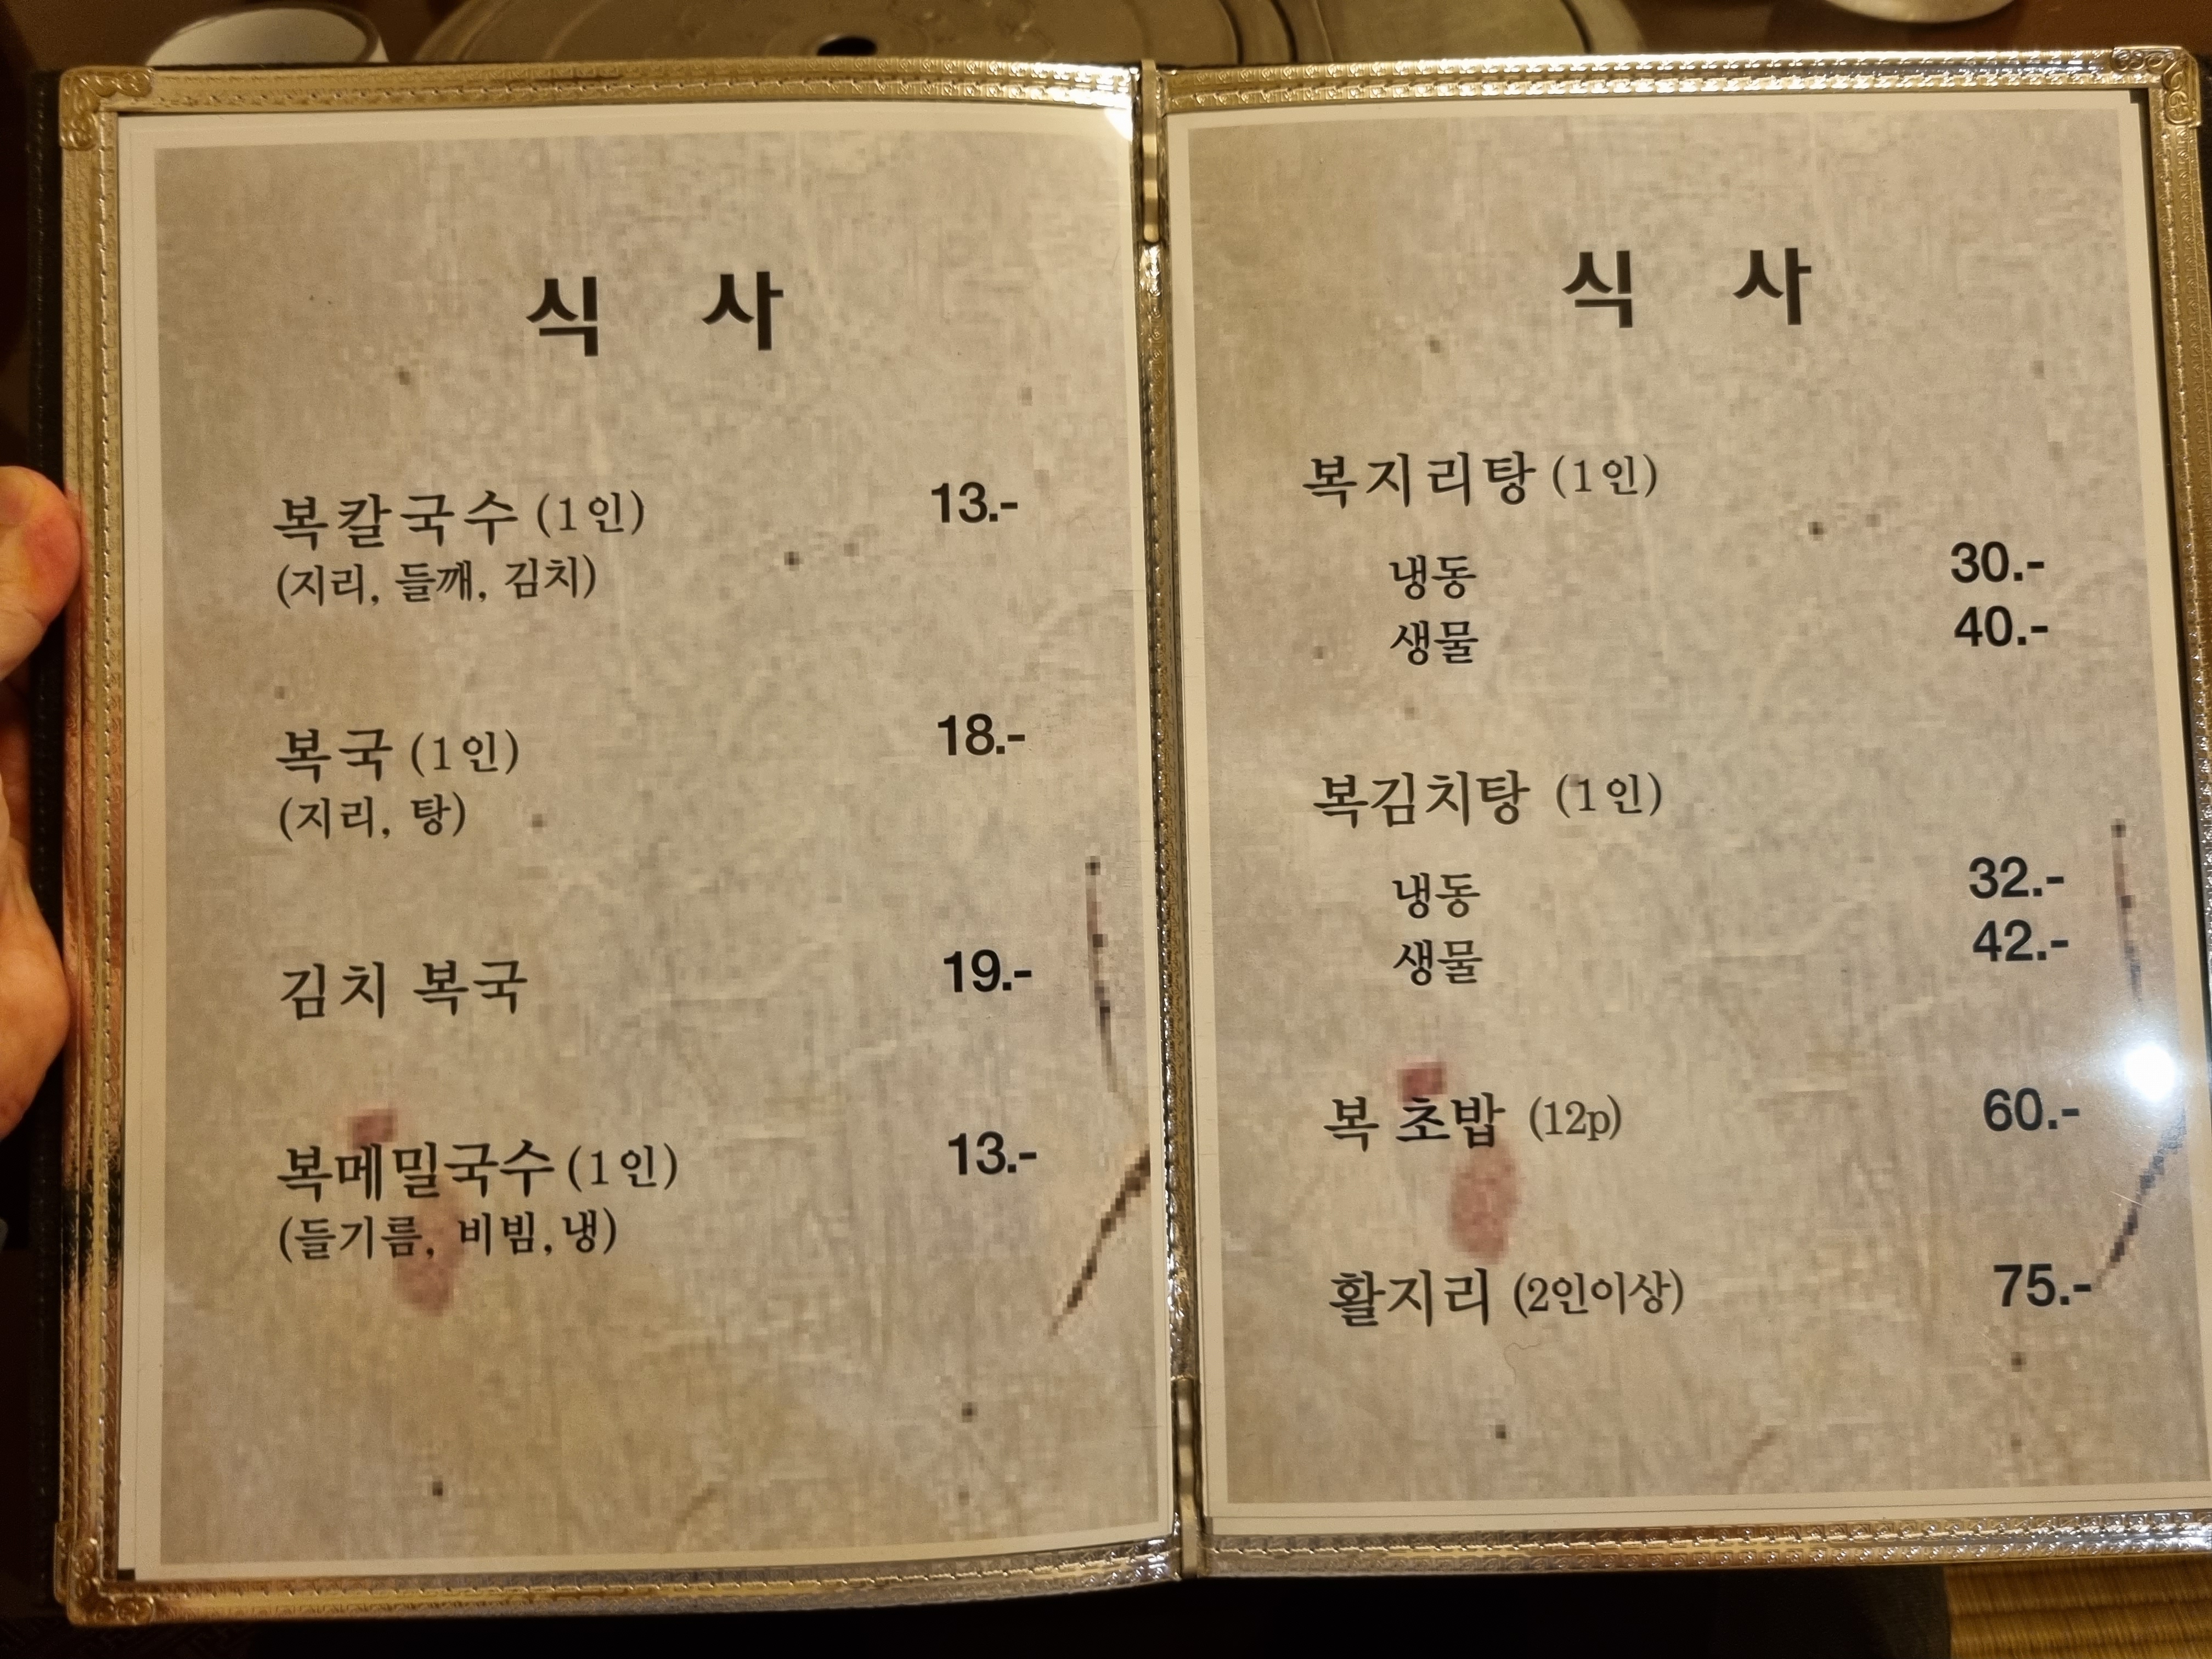 식 사
복칼국수 (1인) 13.-
(지리, 들깨, 김치)
복국 (1인) 18.-
(지리, 탕)
김치 복국 19.-
복메밀국수 (1인) 13.-
(들기름, 비빔, 냉)
식 사
복지리탕 (1인)
냉동 30.-
생물 40.-
복김치탕 (1인)
냉동 32.-
생물 42.-
복 초밥 (12p) 60.-
활지리 (2인이상) 75.-